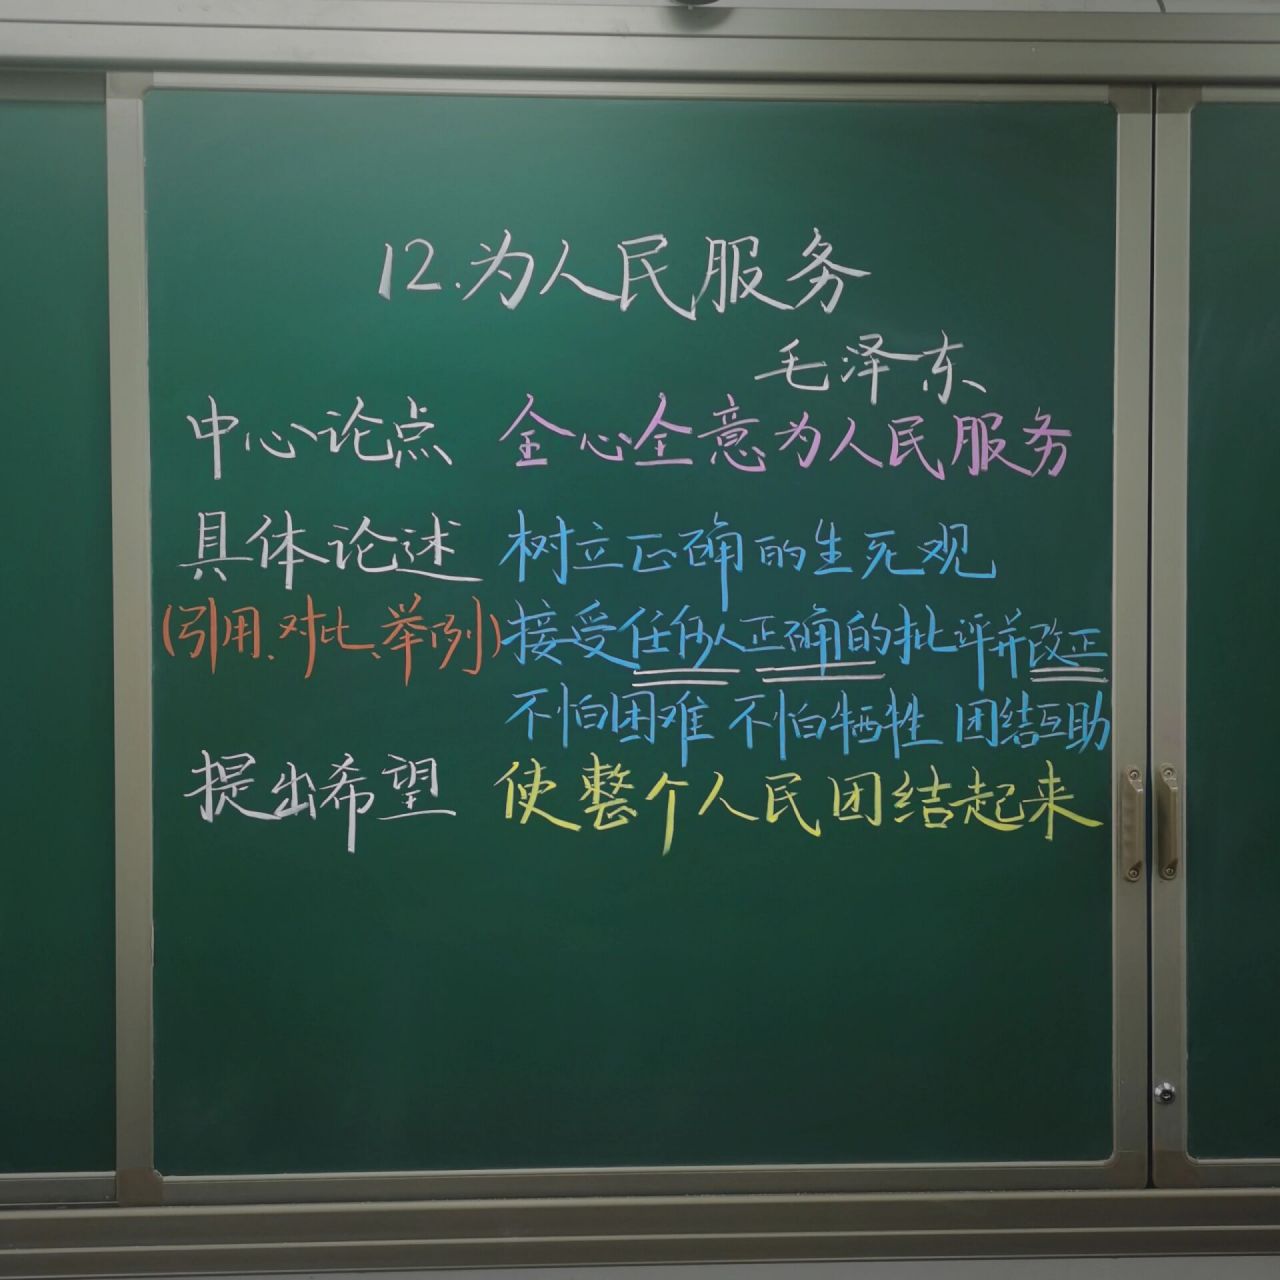 12.为人民服务
毛泽东
中心论点 全心全意为人民服务
具体论述 树立正确的生死观
(引用、对比、举例) 接受任何人正确的批评并改正
不怕困难 不怕牺牲 团结互助
提出希望 使整个人民团结起来